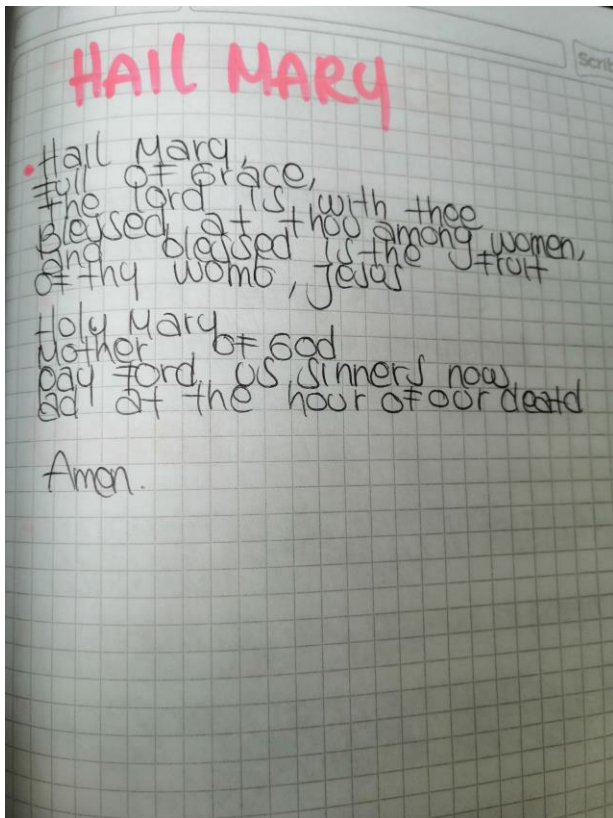 Scrib
HAIL MARY
Hail Mary,
Full of Grace,
the lord is with thee
blessed at thou among women,
and blessed is the fruit
of thy womb, Jesus
Holy Mary
Mother of God
pay ford us sinners now
ad at the hour of our deatd
Amen.